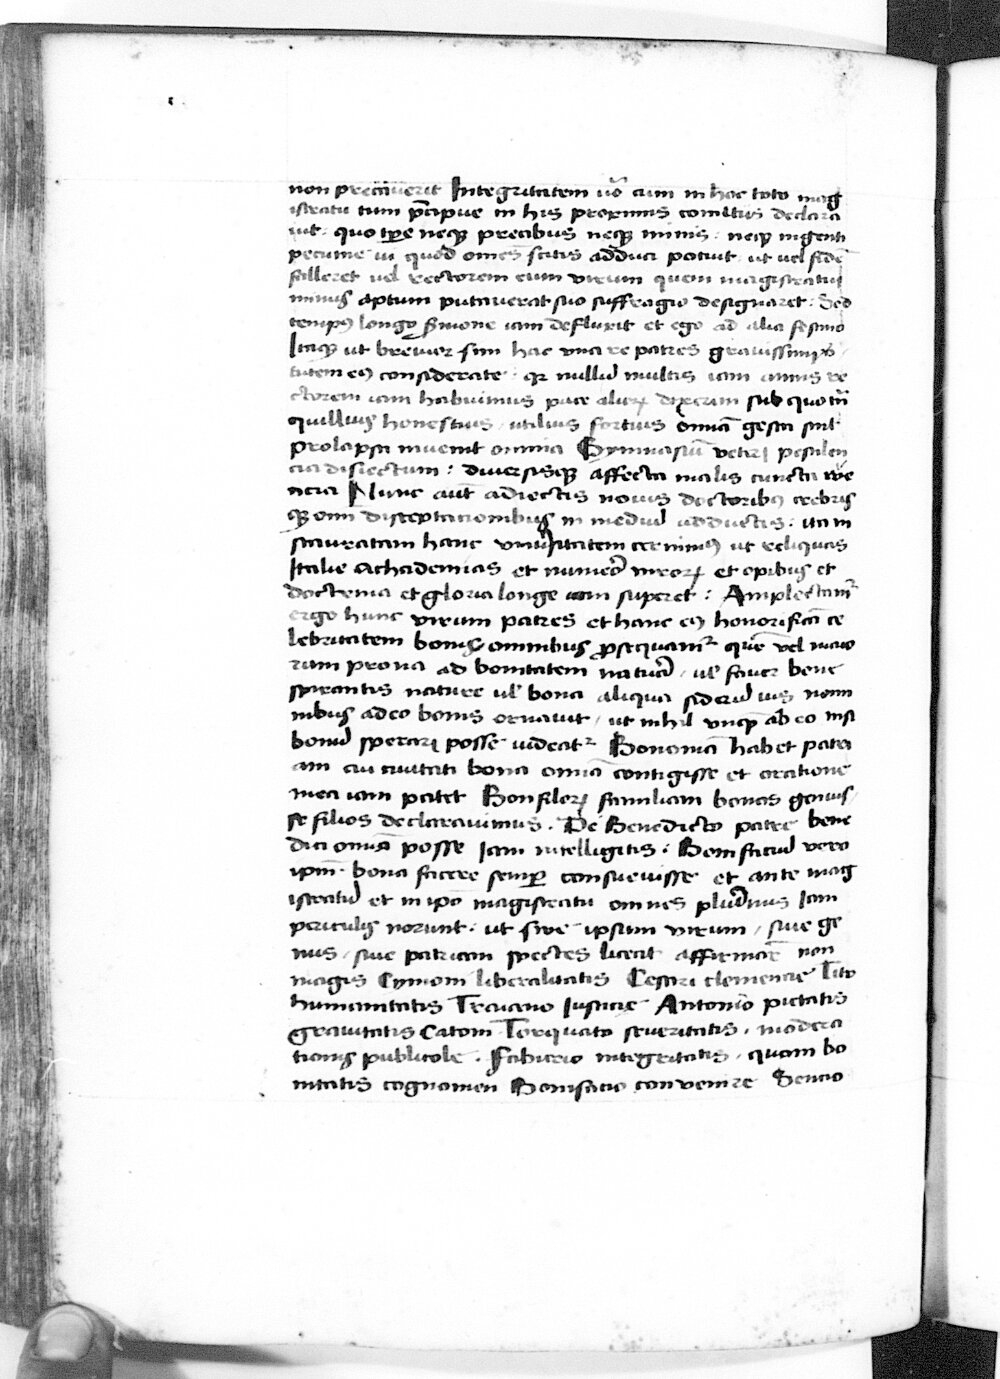 non preciverit Integritatem vo͂ cum in hoc toto mag
istratu tum p͂cipue in his proximis comitiis declara
vit. quo tp͂e neqꝫ precibus neqꝫ minis. neqꝫ ingenti
pecunie vi quod om͂es scitis adduci potuit. ut vel fide͂
falleret vel rectorem eum virum quem magistratui
minus aptum putaverat suo suffragio designaret. Sed
tempꝰ longo s͂mone iam defluxit et ego ad alia festino
Itaqꝫ ut breviter sim hac una re patres gravissimi
tutem eiꝰ considerate. qꝛ nullu͂ multis iam annis re
ctorem iam habuimus pace alioꝝ dixerim sub quo tn͂
quillius honestius, utilius fortius om͂ia gesta sint
prolapsa invenit omnia Gymnasiu͂ veteri pestilen
cia disiectum: diversisqꝫ affecta malis cuncta
Nunc aut͂ adiectis novis doctoribꝰ crebris
qꝫ om͂i disceptacionibus in mediu͂ adductis: ita in
stauratam hanc univ͂sitatem cernimꝰ ut reliquas
Italie achademias et numero et opibus et
doctrina et gloria longe iam superet: Amplectamꝛ
ergo hunc virum patres et hanc eiꝰ honorifica͂ ce
lebritatem bonis omnibus ꝓsequamꝛ que͂ vel maio
rum prona ad bonitatem natura, ul͂ favor bene
spirantis nature ul͂ bona aliqua sideru͂ vis nomi
nibus adeo bonis ornavit, ut nihil unqꝫ ab eo nisi
bonu͂ sperari posse videatꝛ Bononia͂ habet patri
am cui civitati bona om͂ia contigisse et oratione
mea iam patet Bonfilioꝝ familiam bonos genuis,
se filios declaravimus. De Benedicto patre bene
dici om͂ia posse Iam intelligitis. Bonifaciu͂ vero
ipm͂. bona facere semper consuevisse et ante mag
istratu͂ et in ip͂o magistratu omnes plurimis Iam
periculis norunt. ut sive ipsum virum, sive ge
nus, sive patriam spectes liceat affirmare non
magis Cymoni liberalitatis Cesari clemencie Tito
humanitatis Traiano Iusticie Antonio pietatis
gravitatis Catoni Torquato severitatis, modera
tionis publicole. Fabricio integritatis, quam bo
nitatis cognomen Bonifacio convenire Sencio